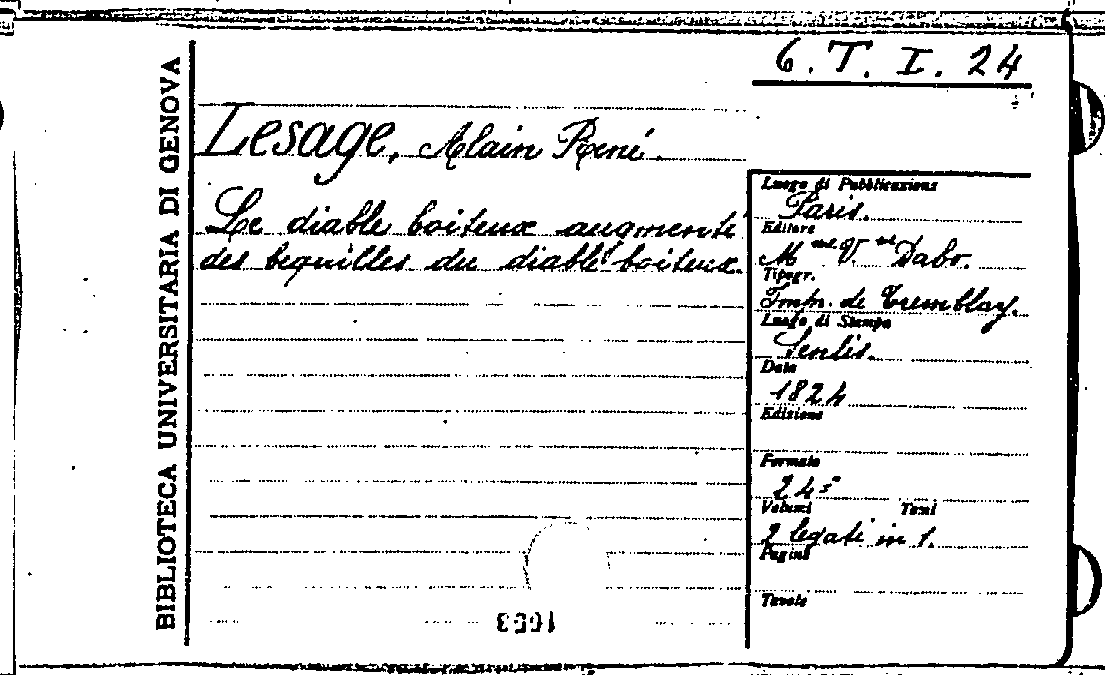 BIBLIOTECA UNIVERSITARIA DI GENOVA
6. T. I. 24
Lesage, Alain René.
Le diable boiteux augmenté
des bequilles du diable boiteux.
Luogo di Pubblicazione
Paris.
Editore
M V Dabo.
Tipogr.
Imp. de Tremblay.
Luogo di Stampa
Senlis.
Data
1824
Edizione
Formato
24°
Volumi Tomi
2 legati in 1.
Pagine
Tavole